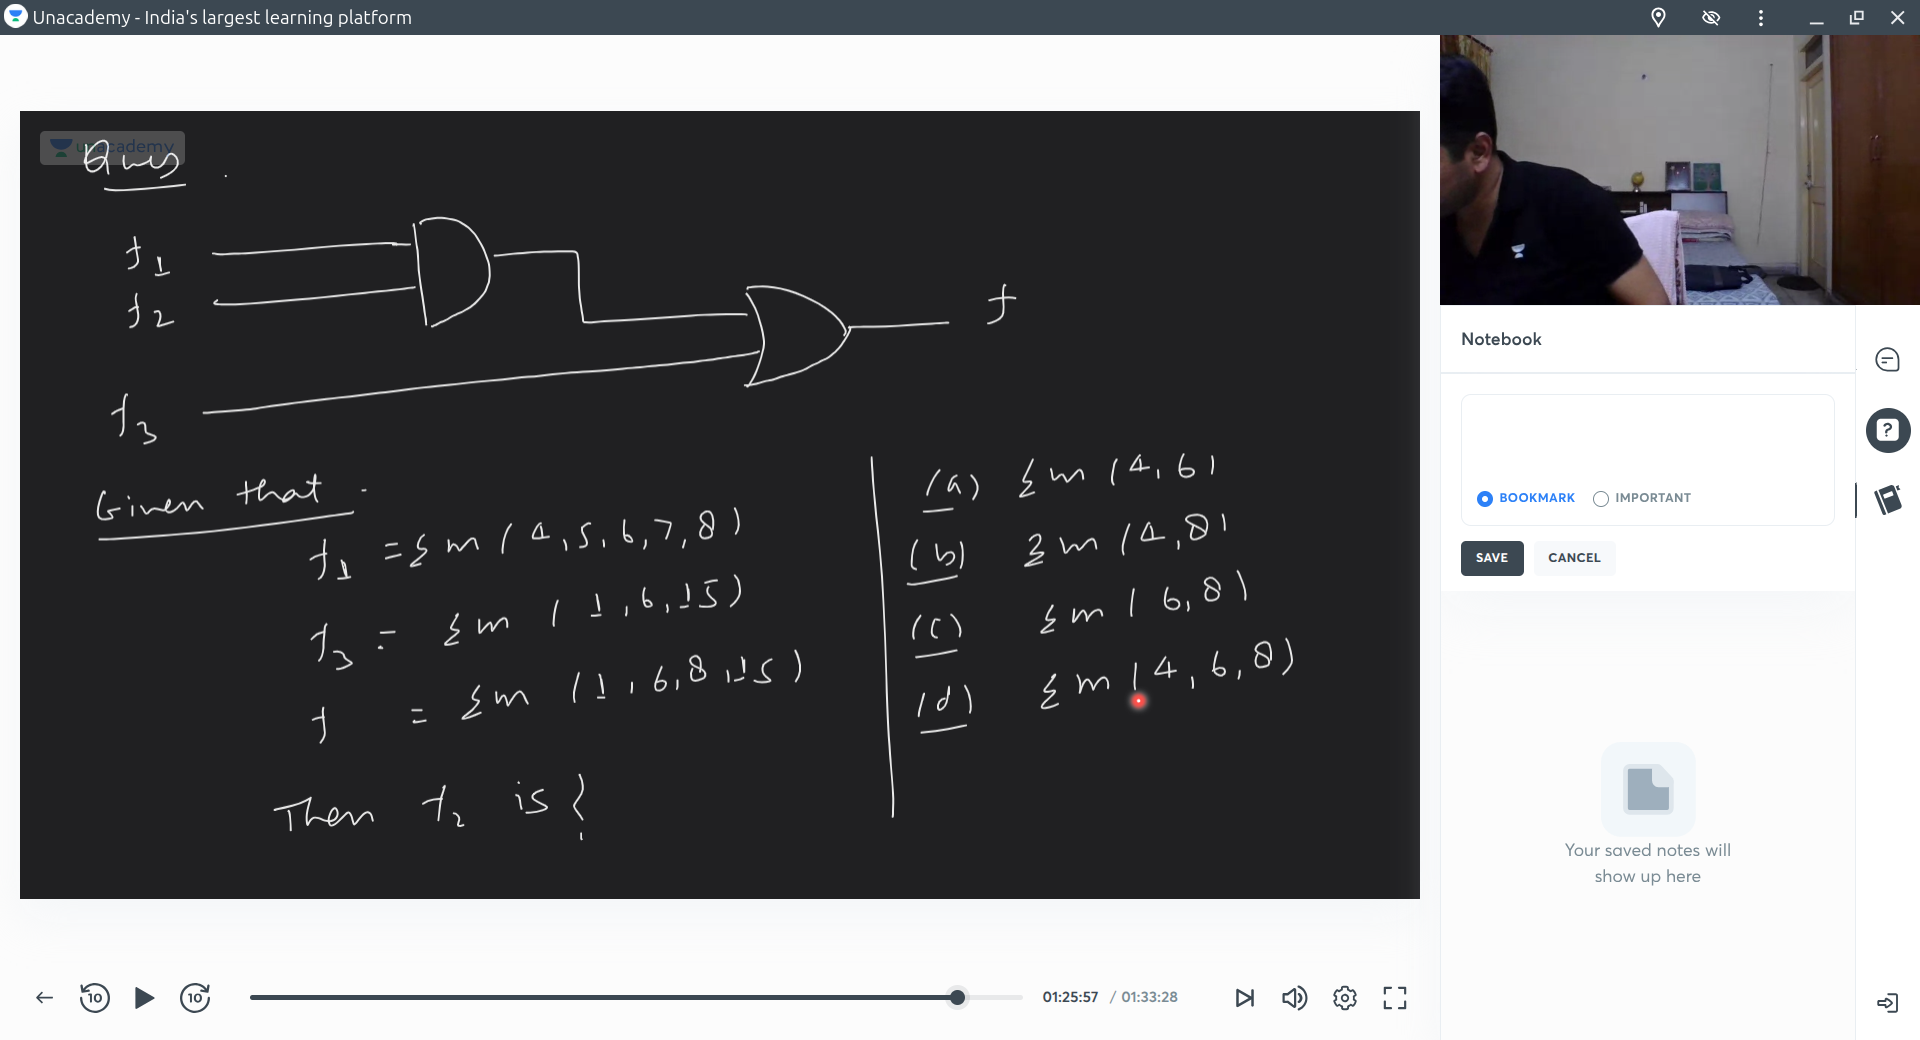 Unacademy - India's largest learning platform
unacademy
Ques.
f1
f2
f3
f
Given that.
f1 = Σm(4,5,6,7,8)
f3 = Σm(1,6,15)
f = Σm(1,6,8,15)
Then f2 is?
(a) Σm(4,6)
(b) Σm(4,8)
(c) Σm(6,8)
(d) Σm(4,6,8)
Notebook
BOOKMARK IMPORTANT
SAVE CANCEL
Your saved notes will
show up here
10 10 01:25:57 / 01:33:28